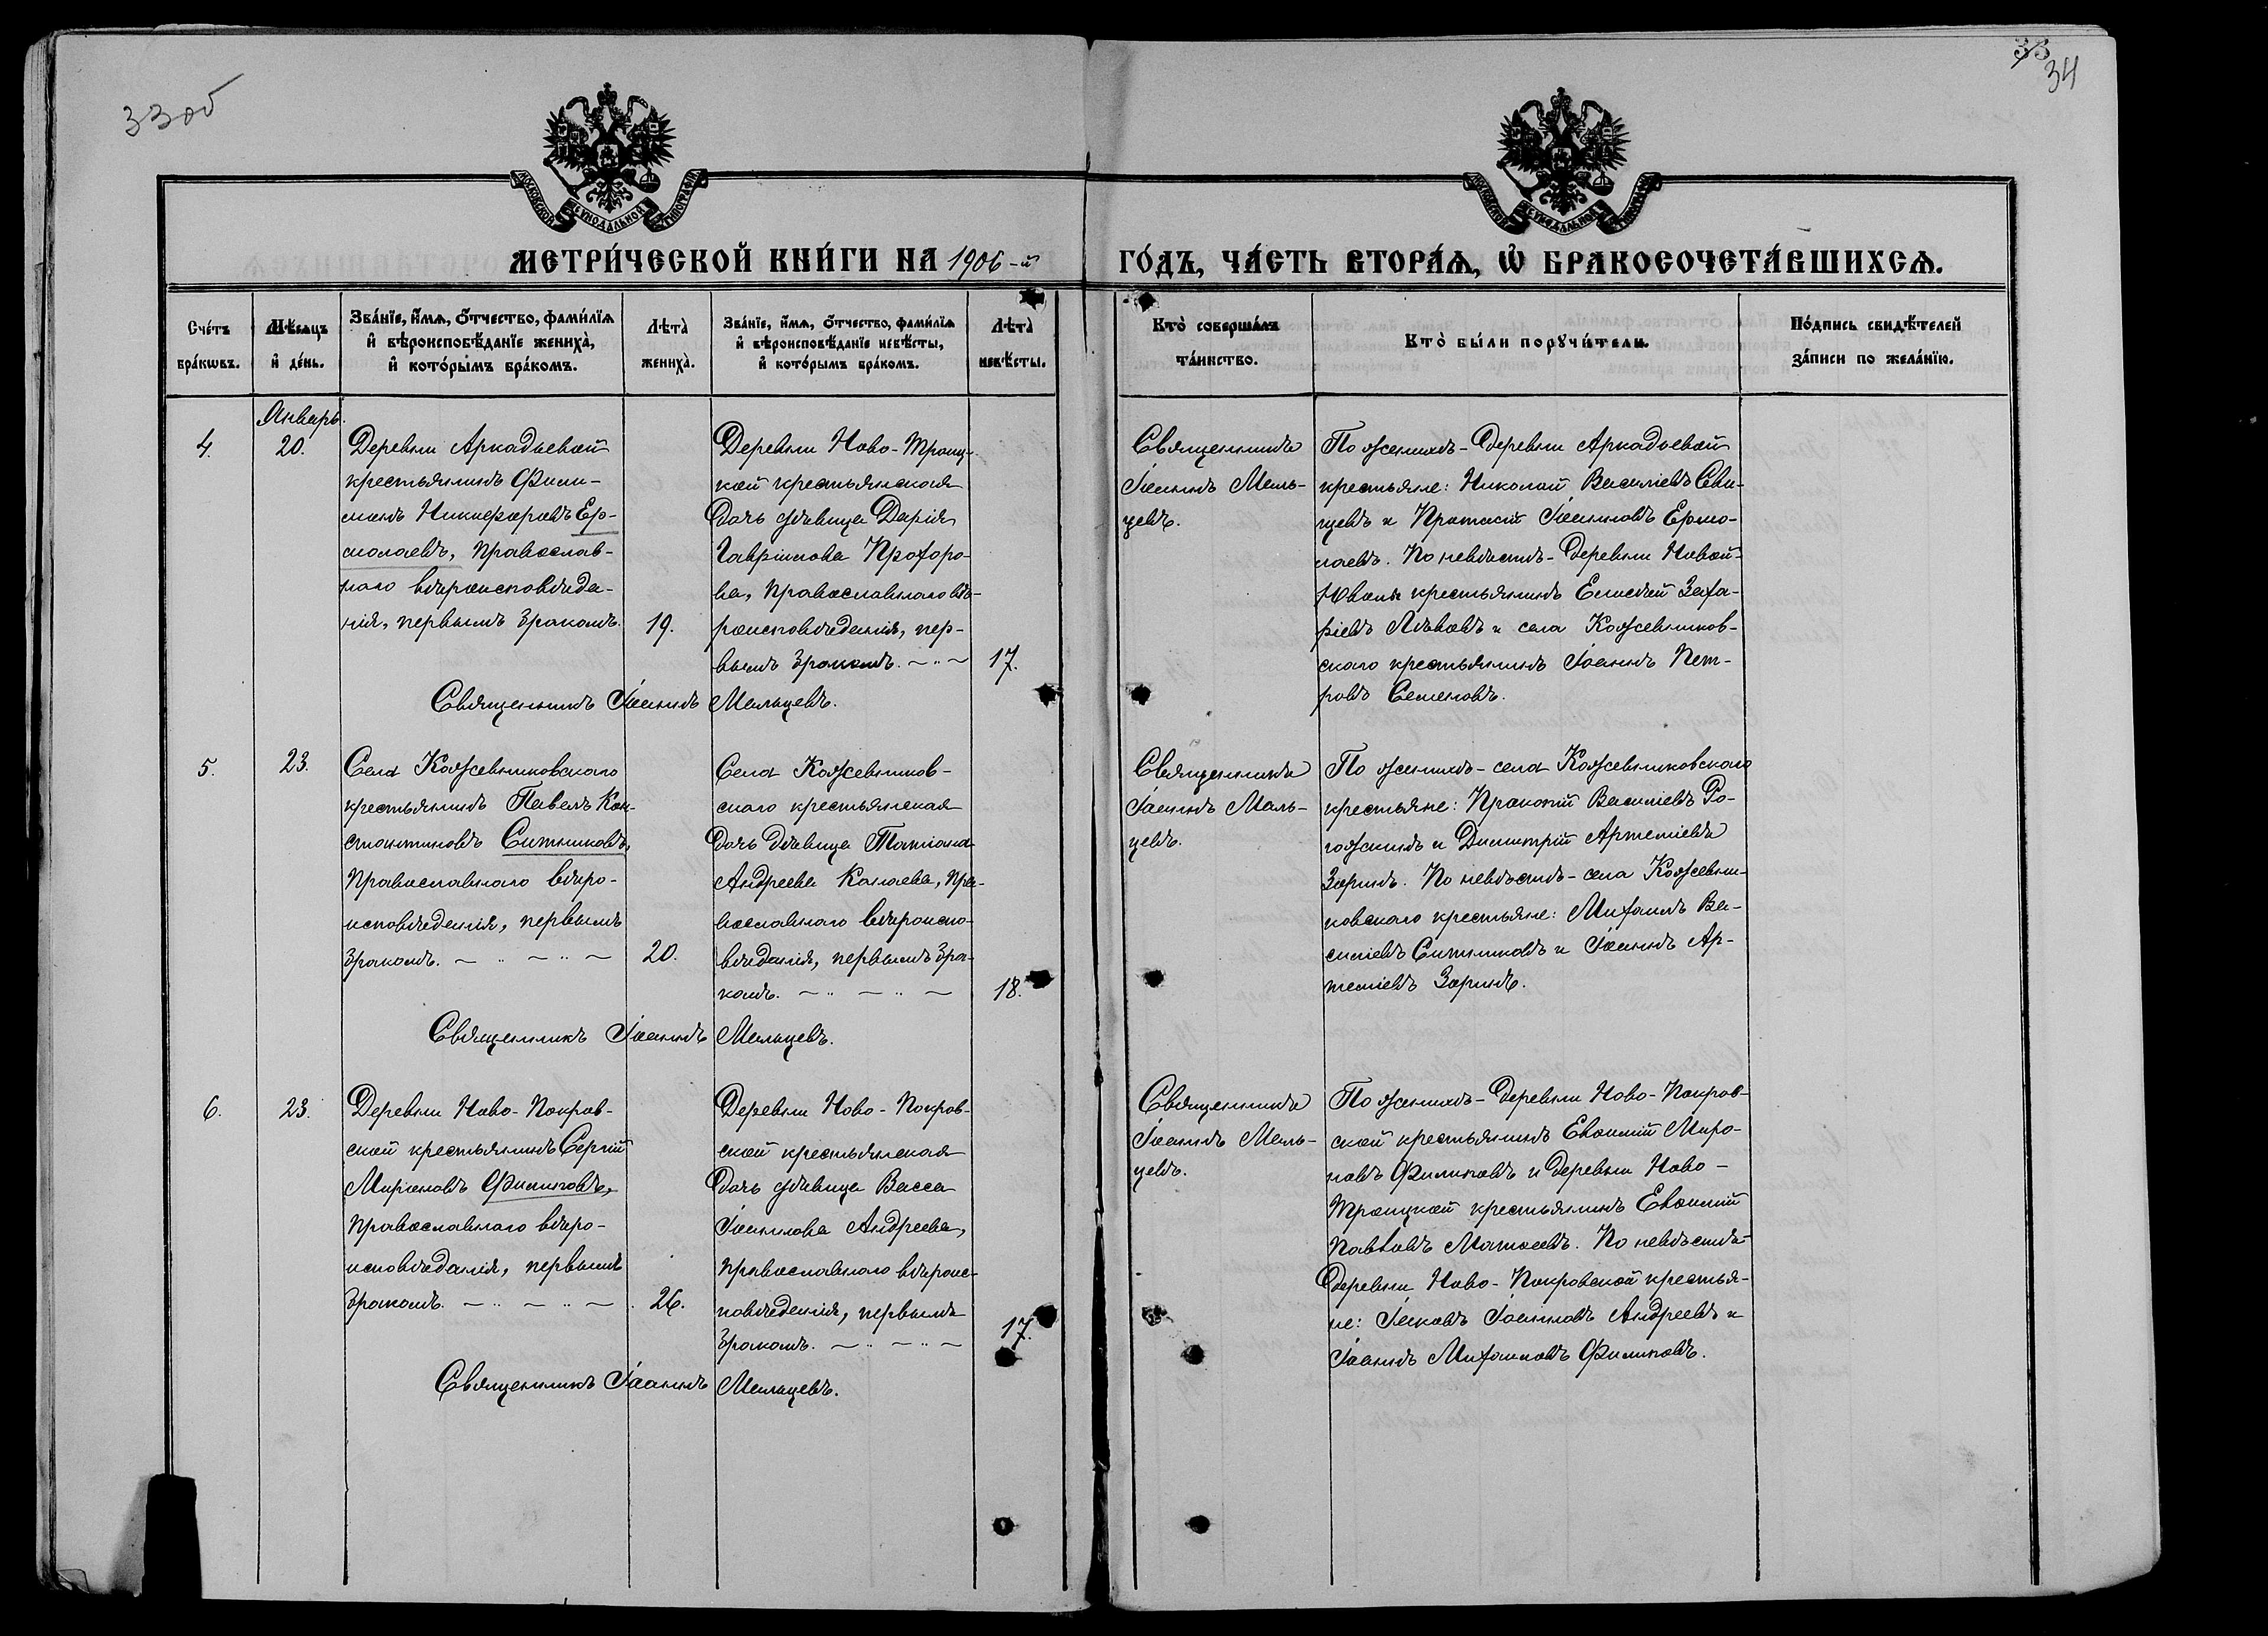 33об
33
34
МОСКОВСКОЙ СУНОДАЛЬНОЙ ТИПОГРАФІИ
МОСКОВСКОЙ СУНОДАЛЬНОЙ ТИПОГРАФІИ
МЕТРИ́ЧЕСКОЙ КНИ́ГИ НА 1906-й ГО́ДЪ, ЧА́СТЬ ВТОРА́Ѧ, Ѡ БРАКОСОЧЕТА́ВШИХСѦ.
Сче́тъ
бра́кѡвъ.
Мѣ́сяцъ
и́ де́нь.
Зва́нїе, и́мѧ, о́тчество, фами́лїѧ
и́ вѣроисповѣ́данїе жениха̀,
и́ кото́рымъ бра́комъ.
Лѣта̀
жениха̀.
Зва́нїе, и́мѧ, о́тчество, фами́лїѧ
и́ вѣроисповѣ́данїе невѣ́сты,
и́ кото́рымъ бра́комъ.
Лѣта̀
невѣ́сты.
Кто̀ соверша́лъ
та́инство.
Кто̀ бы́ли порꙋчи́тели.
По́дпись свидѣ́телей
за́писи по жела́нїю.
Январь.
4.
20.
Деревни Аркадьевой
крестьянинъ Фили-
монъ Никифоровъ Ер-
молаевъ, православ-
наго вѣроисповѣда-
нія, первымъ бракомъ.
19.
Деревни Ново-Троиц-
кой крестьянская
дочь дѣвица Дарія
Гавріилова Прохоро-
ва, православнаго вѣ-
роисповѣданія, пер-
вымъ бракомъ.
17.
Священникъ
Іоаннъ Маль-
цевъ.
По женихѣ - деревни Аркадьевой
крестьяне: Николай Василіевъ Сви-
щевъ и Протасій Іоанновъ Ермо-
лаевъ. По невѣстѣ - деревни Новой-
Ювалы крестьянинъ Елисей Заха-
ріевъ Львовъ и села Кожевников-
скаго крестьянинъ Іоаннъ Пет-
ровъ Семеновъ.
Священникъ Іоаннъ Мальцевъ.
5.
23.
Села Кожевниковскаго
крестьянинъ Павелъ Кон-
стантиновъ Ситниковъ,
православнаго вѣро-
исповѣданія, первымъ
бракомъ.
20.
Села Кожевников-
скаго крестьянская
дочь дѣвица Татіана
Андреева Канаева, пра-
вославнаго вѣроиспо-
вѣданія, первымъ бра-
комъ.
18.
Священникъ
Іоаннъ Маль-
цевъ.
По женихѣ - села Кожевниковскаго
крестьяне: Прокопій Василіевъ Ро-
гожинъ и Димитрій Артеміевъ
Зоринъ. По невѣстѣ - села Кожевни-
ковскаго крестьяне: Михаилъ Ва-
силіевъ Ситниковъ и Іоаннъ Ар-
теміевъ Зоринъ.
Священникъ Іоаннъ Мальцевъ.
6.
23.
Деревни Ново-Покров-
ской крестьянинъ Сергій
Мироновъ Филиповъ,
православнаго вѣро-
исповѣданія, первымъ
бракомъ.
26.
Деревни Ново-Покров-
ской крестьянская
дочь дѣвица Васса
Іоаннова Андреева,
православнаго вѣроис-
повѣданія, первымъ
бракомъ.
17.
Священникъ
Іоаннъ Маль-
цевъ.
По женихѣ - деревни Ново-Покров-
ской крестьянинъ Евѳимій Миро-
новъ Филиповъ и деревни Ново-
Троицкой крестьянинъ Евѳимій
Павловъ Матѳеевъ. По невѣстѣ-
деревни Ново-Покровской крестья-
не: Іаковъ Іоанновъ Андреевъ и
Іоаннъ Михаиловъ Филиповъ.
Священникъ Іоаннъ Мальцевъ.